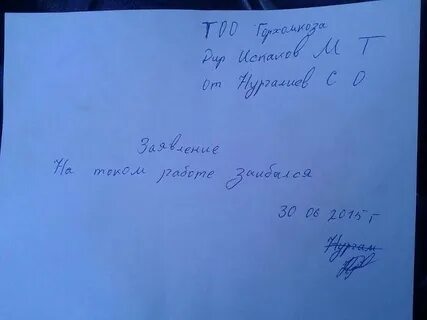 ТОО Горхимкоза
Дир Испалов М Т
от Нургалиев С О
Заявление
На таком работе Заибался
30 06 2015 г
Нургали